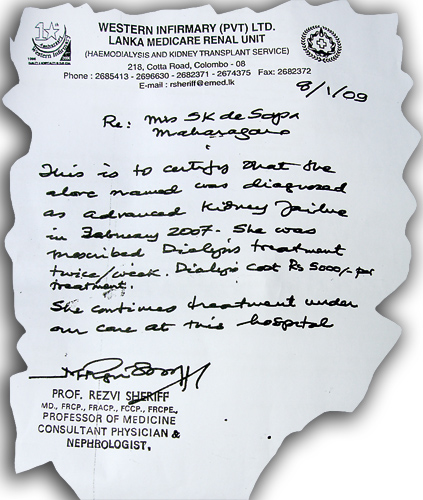 WESTERN INFIRMARY (PVT) LTD.
LANKA MEDICARE RENAL UNIT
(HAEMODIALYSIS AND KIDNEY TRANSPLANT SERVICE)
218, Cotta Road, Colombo - 08
Phone : 2685413 - 2696630 - 2682371 - 2674375 Fax: 2682372
E-mail : rsheriff@emed.lk
8/1/09
Re: Mrs SK de Soysa
Maharagama
This is to certify that the
above named was diagnosed
as advanced Kidney Failure
in February 2007. She was
prescribed Dialysis treatment
twice/week. Dialysis cost Rs 5000/- per
treatment.
She continues treatment under
our care at this hospital
PROF. REZVI SHERIFF
MD., FRCP., FRACP., FCCP., FRCPE.,
PROFESSOR OF MEDICINE
CONSULTANT PHYSICIAN &
NEPHROLOGIST,